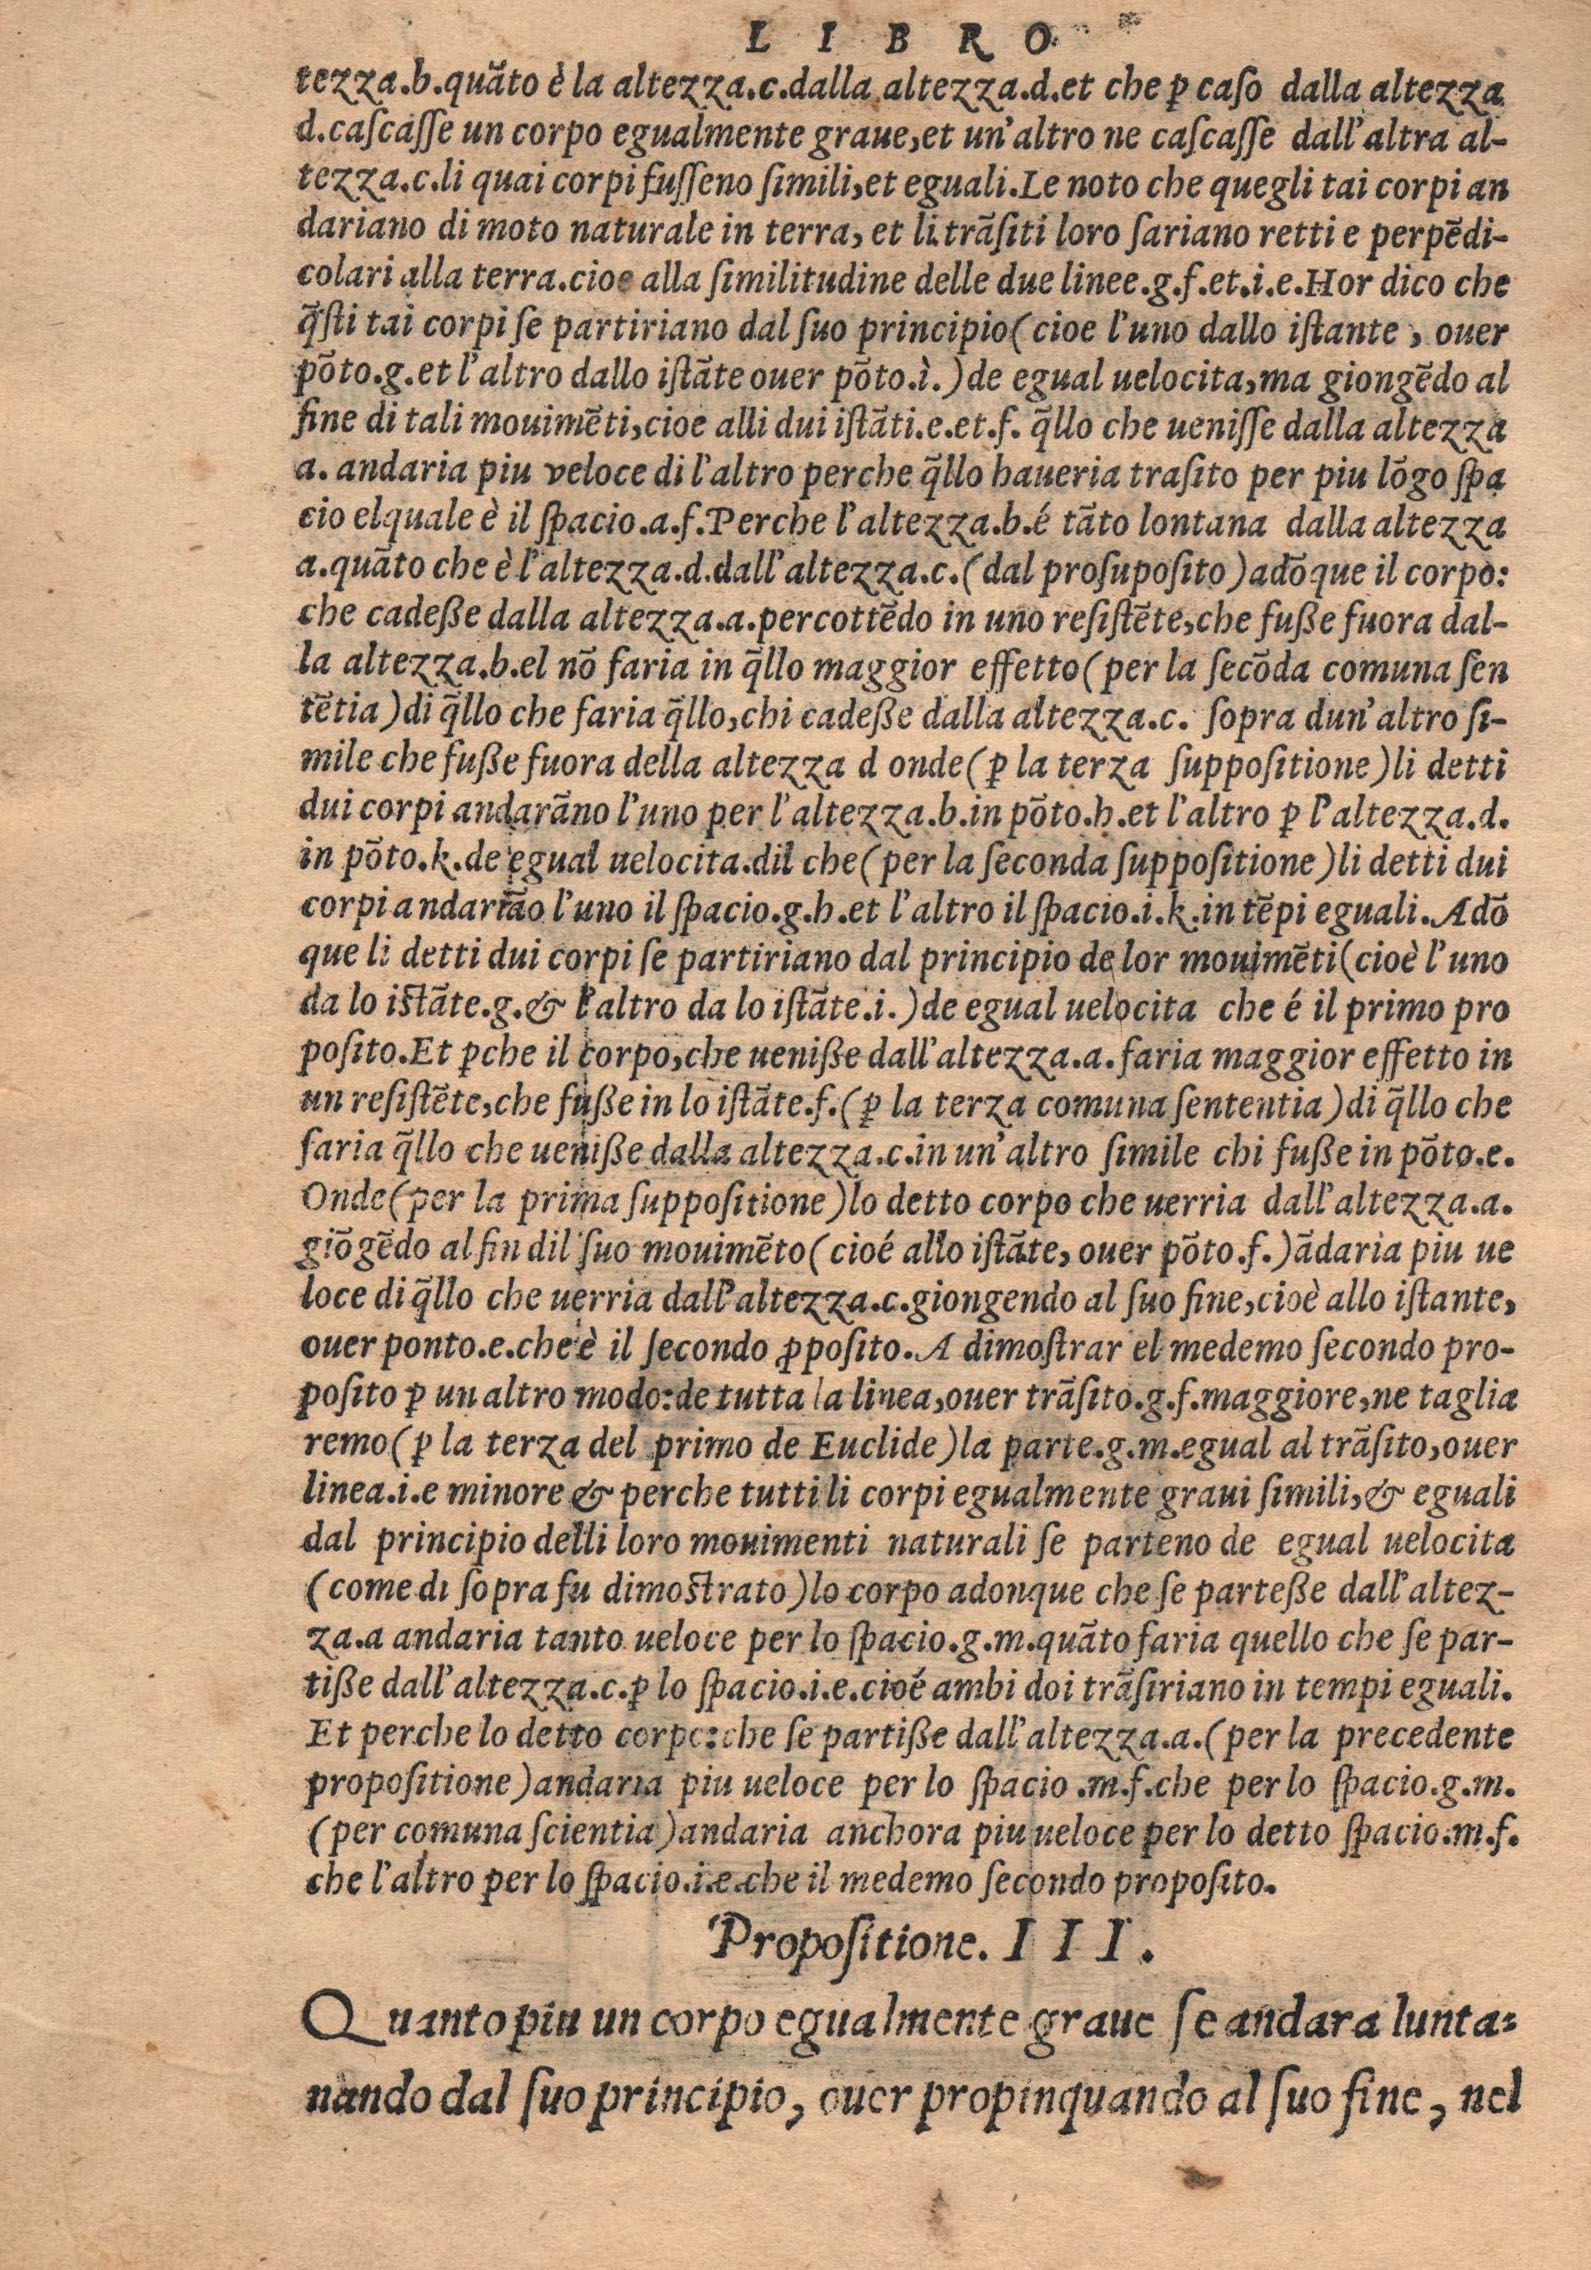 LIBRO
tezza.b.quãto è la altezza.c.dalla altezza.d.et che ꝑ caſo dalla altezza
d.caſcaſſe un corpo egualmente graue,et un'altro ne caſcaſſe dall'altra al-
tezza.c.li quai corpi fuſſeno ſimili,et eguali.Le noto che quegli tai corpi an
dariano di moto naturale in terra, et li trãſiti loro ſariano retti e perpẽdi-
colari alla terra.cioe alla ſimilitudine delle due linee.g.f.et.i.e.Hor dico che
q̃ſti tai corpi ſe partiriano dal ſuo principio(cioe l'uno dallo iſtante , ouer
põto.g.et l'altro dallo iſtãte ouer põto.ì.)de egual uelocita,ma giongẽdo al
fine di tali mouimẽti,cioe alli dui iſtãti.e.et.f. q̃llo che ueniſſe dalla altezza
a. andaria piu veloce di l'altro perche q̃llo haueria traſito per piu lõgo ſpa
cio elquale è il ſpacio.a.f.Perche l'altezza.b.é tãto lontana dalla altezza
a.quãto che è l'altezza.d.dall'altezza.c.(dal proſupoſito)adõque il corpo:
che cadeße dalla altezza.a.percottẽdo in uno reſiſtẽte,che fuße fuora dal-
la altezza.b.el nõ faria in q̃llo maggior effetto(per la ſecõda comuna ſen
tẽtia)di q̃llo che faria q̃llo,chi cadeße dalla altezza.c. ſopra dun'altro ſi-
mile che fuße fuora della altezza d onde(ꝑ la terza ſuppoſitione)li detti
dui corpi andarãno l'uno per l'altezza.b.in põto.h.et l'altro ꝑ l'altezza.d.
in põto.k.de egual uelocita.dil che(per la ſeconda ſuppoſitione)li detti dui
corpi andarião l'uno il ſpacio.g.h.et l'altro il ſpacio.i.k.in tẽpi eguali.Adõ
que li detti dui corpi ſe partiriano dal principio de lor mouimẽti(cioè l'uno
da lo iſtãte.g.& l'altro da lo iſtãte.i.)de egual uelocita che é il primo pro
poſito.Et ꝑche il corpo,che ueniße dall'altezza.a.faria maggior effetto in
un reſiſtẽte,che fuße in lo iſtãte.f.(ꝑ la terza comuna ſententia)di q̃llo che
faria q̃llo che ueniße dalla altezza.c.in un'altro ſimile chi fuße in põto.e.
Onde(per la prima ſuppoſitione)lo detto corpo che uerria dall'altezza.a.
giõgẽdo al fin dil ſuo mouimẽto(cioé allo iſtãte, ouer põto.f.)ãdaria piu ue
loce di q̃llo che uerria dall'altezza.c.giongendo al ſuo fine,cioè allo iſtante,
ouer ponto.e.che è il ſecondo ꝓpoſito.A dimoſtrar el medemo ſecondo pro-
poſito ꝑ un altro modo:de tutta la linea,ouer trãſito.g.f.maggiore,ne taglia
remo(ꝑ la terza del primo de Euclide)la parte.g.m.egual al trãſito,ouer
linea.i.e minore & perche tutti li corpi egualmente graui ſimili,& eguali
dal principio delli loro mouimenti naturali ſe parteno de egual uelocita
(come di ſopra fu dimoſtrato)lo corpo adonque che ſe parteße dall'altez-
za.a andaria tanto ueloce per lo ſpacio.g.m.quãto faria quello che ſe par-
tiße dall'altezza.c.ꝑ lo ſpacio.i.e.cioé ambi doi trãſiriano in tempi eguali.
Et perche lo detto corpo:che ſe partiße dall'altezza.a.(per la precedente
propoſitione)andaria piu ueloce per lo ſpacio .m.f.che per lo ſpacio.g.m.
(per comuna ſcientia)andaria anchora piu ueloce per lo detto ſpacio.m.f.
che l'altro per lo ſpacio.i.e.che il medemo ſecondo propoſito.
Propoſitione. I I I .
Quanto piu un corpo egualmente graue ſe andara lunta-
nando dal ſuo principio, ouer propinquando al ſuo fine, nel